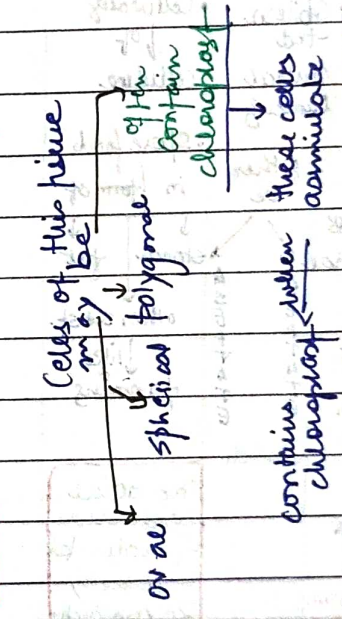 Cells of this tissue
may be
oval
spherical
polygonal
often
contain
chloroplast
these cells
assimilate
when
contains
chloroplast